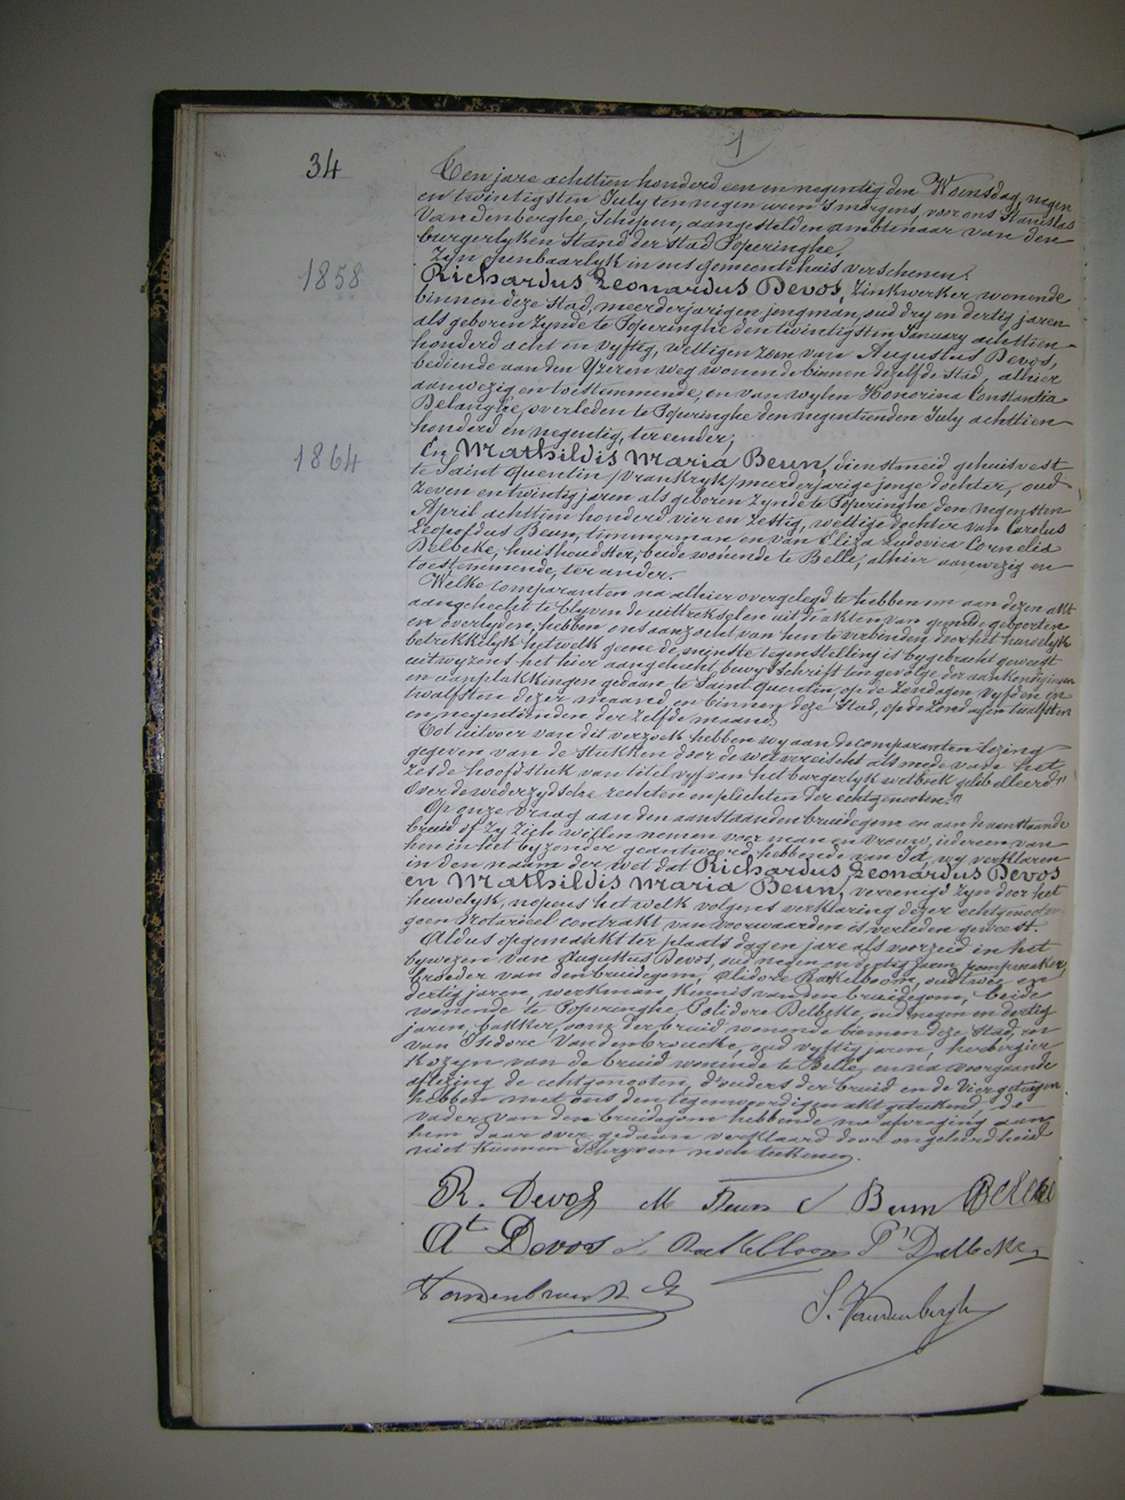 1
34
Ten jare achttien honderd een en negentig den Woensdag, negen
en twintigsten July ten negen uren 's morgens, voor ons Stanislas
Vandenberghe, Schepen, aangestelden ambtenaar van den
burgerlyken Stand der Stad Poperinghe,
Zyn openbaarlyk in ons gemeentehuis verschenen:
1858
Richardus Leonardus Devos, Zinkwerker wonende
binnen deze Stad, meerderjarigen jongman, oud dry en dertig jaren
als geboren zynde te Poperinghe den twintigsten January achttien
honderd acht en vyftig, wettigen zoon van Augustus Devos,
bediende aan den Yzeren weg wonende binnen dezelfde Stad, alhier
aanwezig en toestemmende, en van wylen Honorina Constantia
Belanghe, overleden te Poperinghe den negentienden July achttien
honderd en negentig, ter eender;
1864
En Mathildis Maria Beun, dienstmeid gehuisvest
te Saint Quentin /Vrankryk/ meerderjarige jonge dochter, oud
zeven en twintig jaren als geboren zynde te Poperinghe den negensten
April achttien honderd vier en zestig, wettige dochter van Carolus
Leopoldus Beun, timmerman en van Eliza Ludovica Cornelia
Delbeke, huishoudster, beide wonende te Belle, alhier aanwezig en
toestemmende, ter ander.
Welke comparanten na alhier overgelegd te hebben om aan dezen akt
aangehecht te blyven de uittrekselen uit de akten van gemelde geboorten
en overlyden, hebben ons aanzocht van hen te verbinden door het huwelyk
betrekkelyk hetwelk geene de minste tegenstelling is bygebracht geweest
uitwyzens het hier aangehecht bewysschrift ten gevolge der aankondigingen
en aanplakkingen gedaan te Saint Quentin, op de Zondagen vyfden en
twalfsten dezer maand en binnen deze Stad, op de Zondagen twalfsten
en negentienden der zelfde maand,
Tot uitvoer van dit verzoek hebben wy aan de comparanten lezing
gegeven van de stukken door de wet vereischt als mede van het
zesde hoofdstuk van titel vyf van het burgerlyk wetboek gelibelleerd "
Over de wederzydsche rechten en plichten der echtgenooten."
Op onze vraag aan den aanstaanden bruidegom en aan de aanstaande
bruid of zy zich willen nemen voor man en vrouw, iedereen van
hen in het byzonder geantwoord hebbende van Ja, wy verklaren
in den naam der wet dat Richardus Leonardus Devos
en Mathildis Maria Beun, vereenigd zyn door het
huwelyk, nopens het welk volgens verklaring dezer echtgenooten
geen Notarieel contrakt van voorwaarden is verleden geweest.
Aldus opgemaakt ter plaats dag en jare als voorzeid in het
bywezen van Augustus Devos, oud negen en dertig jaren, pompmaker,
broeder van den bruidegom, Elidore Rackelboom, oud twee en
dertig jaren, werkman, kennis van den bruidegom, beide
wonende te Poperinghe, Polidore Delbeke, oud negen en dertig
jaren, bakker, oom der bruid wonende binnen deze Stad, en
van Isidore Vandenbroucke, oud vyftig jaren, herbergier
Kozyn van de bruid wonende te Belle, en na voorgaande
aflezing de echtgenooten, d'ouders der bruid en de Vier getuigen
hebben met ons den tegenwoordigen akt geteekend, de
vader van den bruidegom hebbende na afvraging aan
hem daar over gedaan verklaard door ongeleerdheid
niet kunnen schryven noch teekenen.
R. Devos M Beun C Beun Delbeke
At Devos E. Rackelboom P' Delbeke
Vandenbroucke
S. Vandenberghe